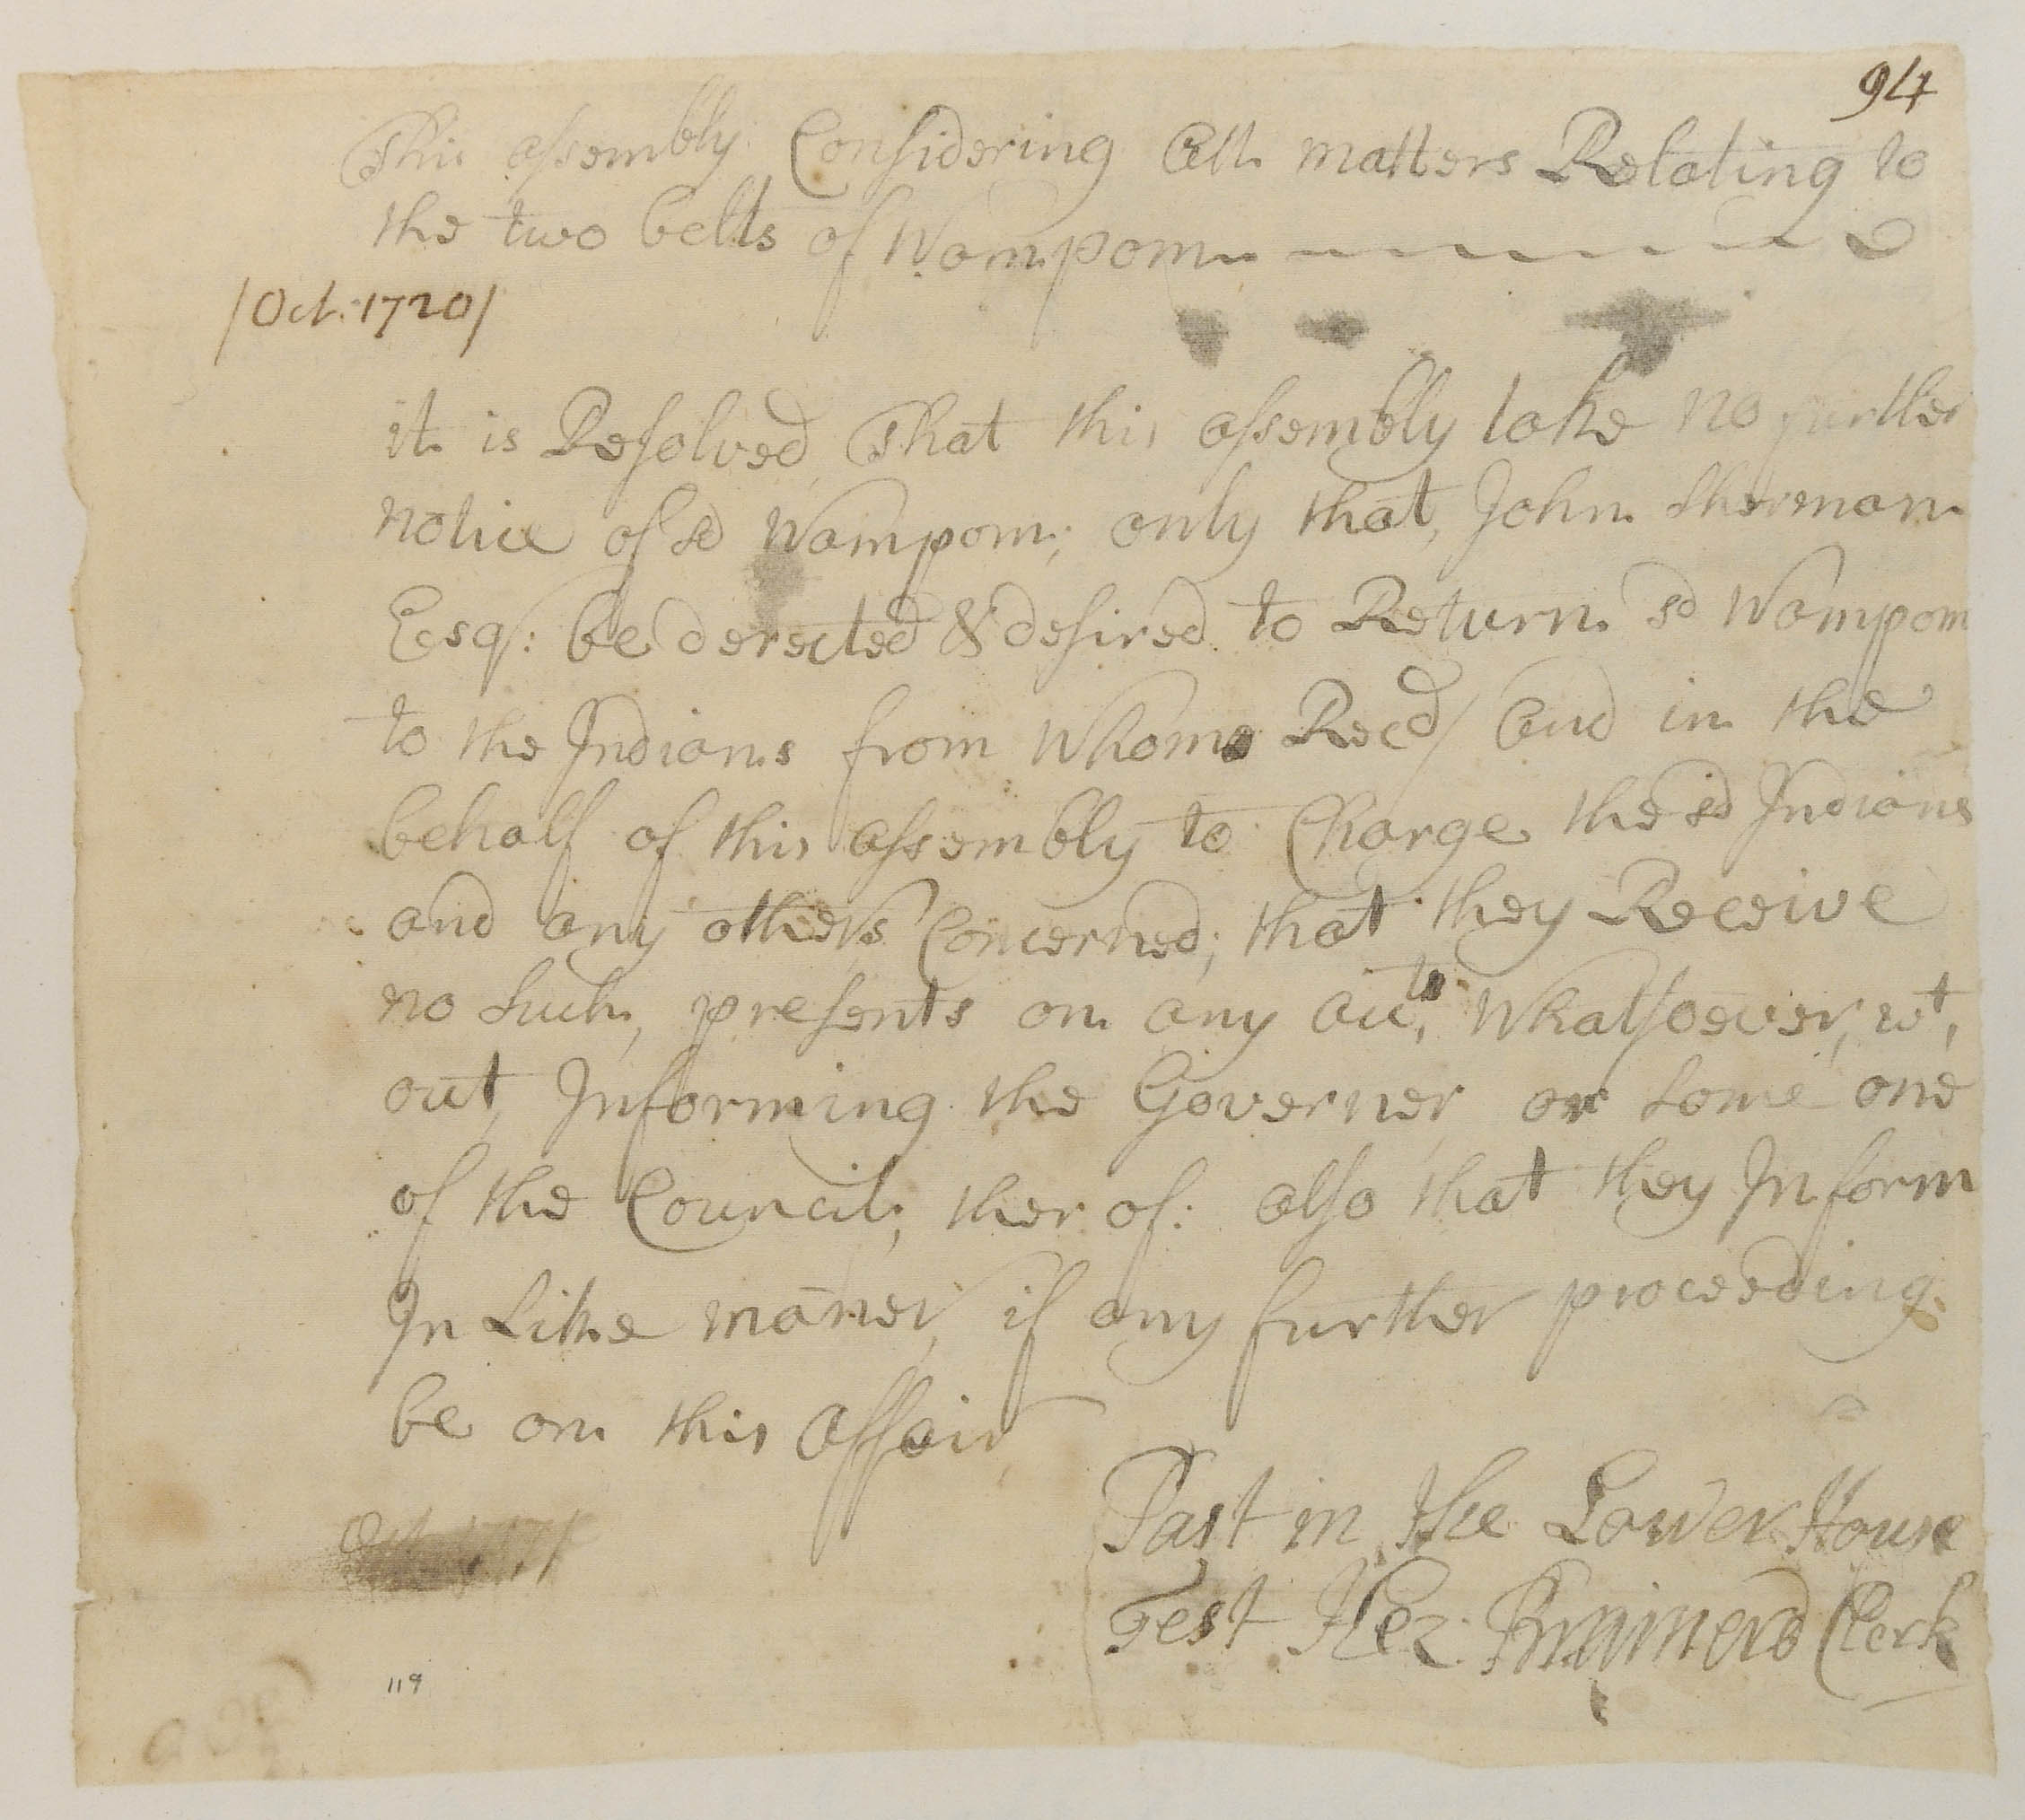 94
This assembly Considering All matters Relating to
the two belts of Wampom
/Oct. 1720/
it is Resolved That this assembly take no further
notice of sd Wampom; only that, John Sherman
Esq: be derected & desired to Return sd Wampom
to the Indians from Whome Recd/ And in the
behalf of this assembly to Charge the sd Indians
and any others Concerned; that they Receive
no such, presents on any acts, Whatsoever, wt,
out, Informing the Governer or some one
of the Council; ther of: also that they Inform
In Like maner, if any further proceeding
be on this Affair
Past in the Lower House
Test Hez: Brainerd Clerk
119